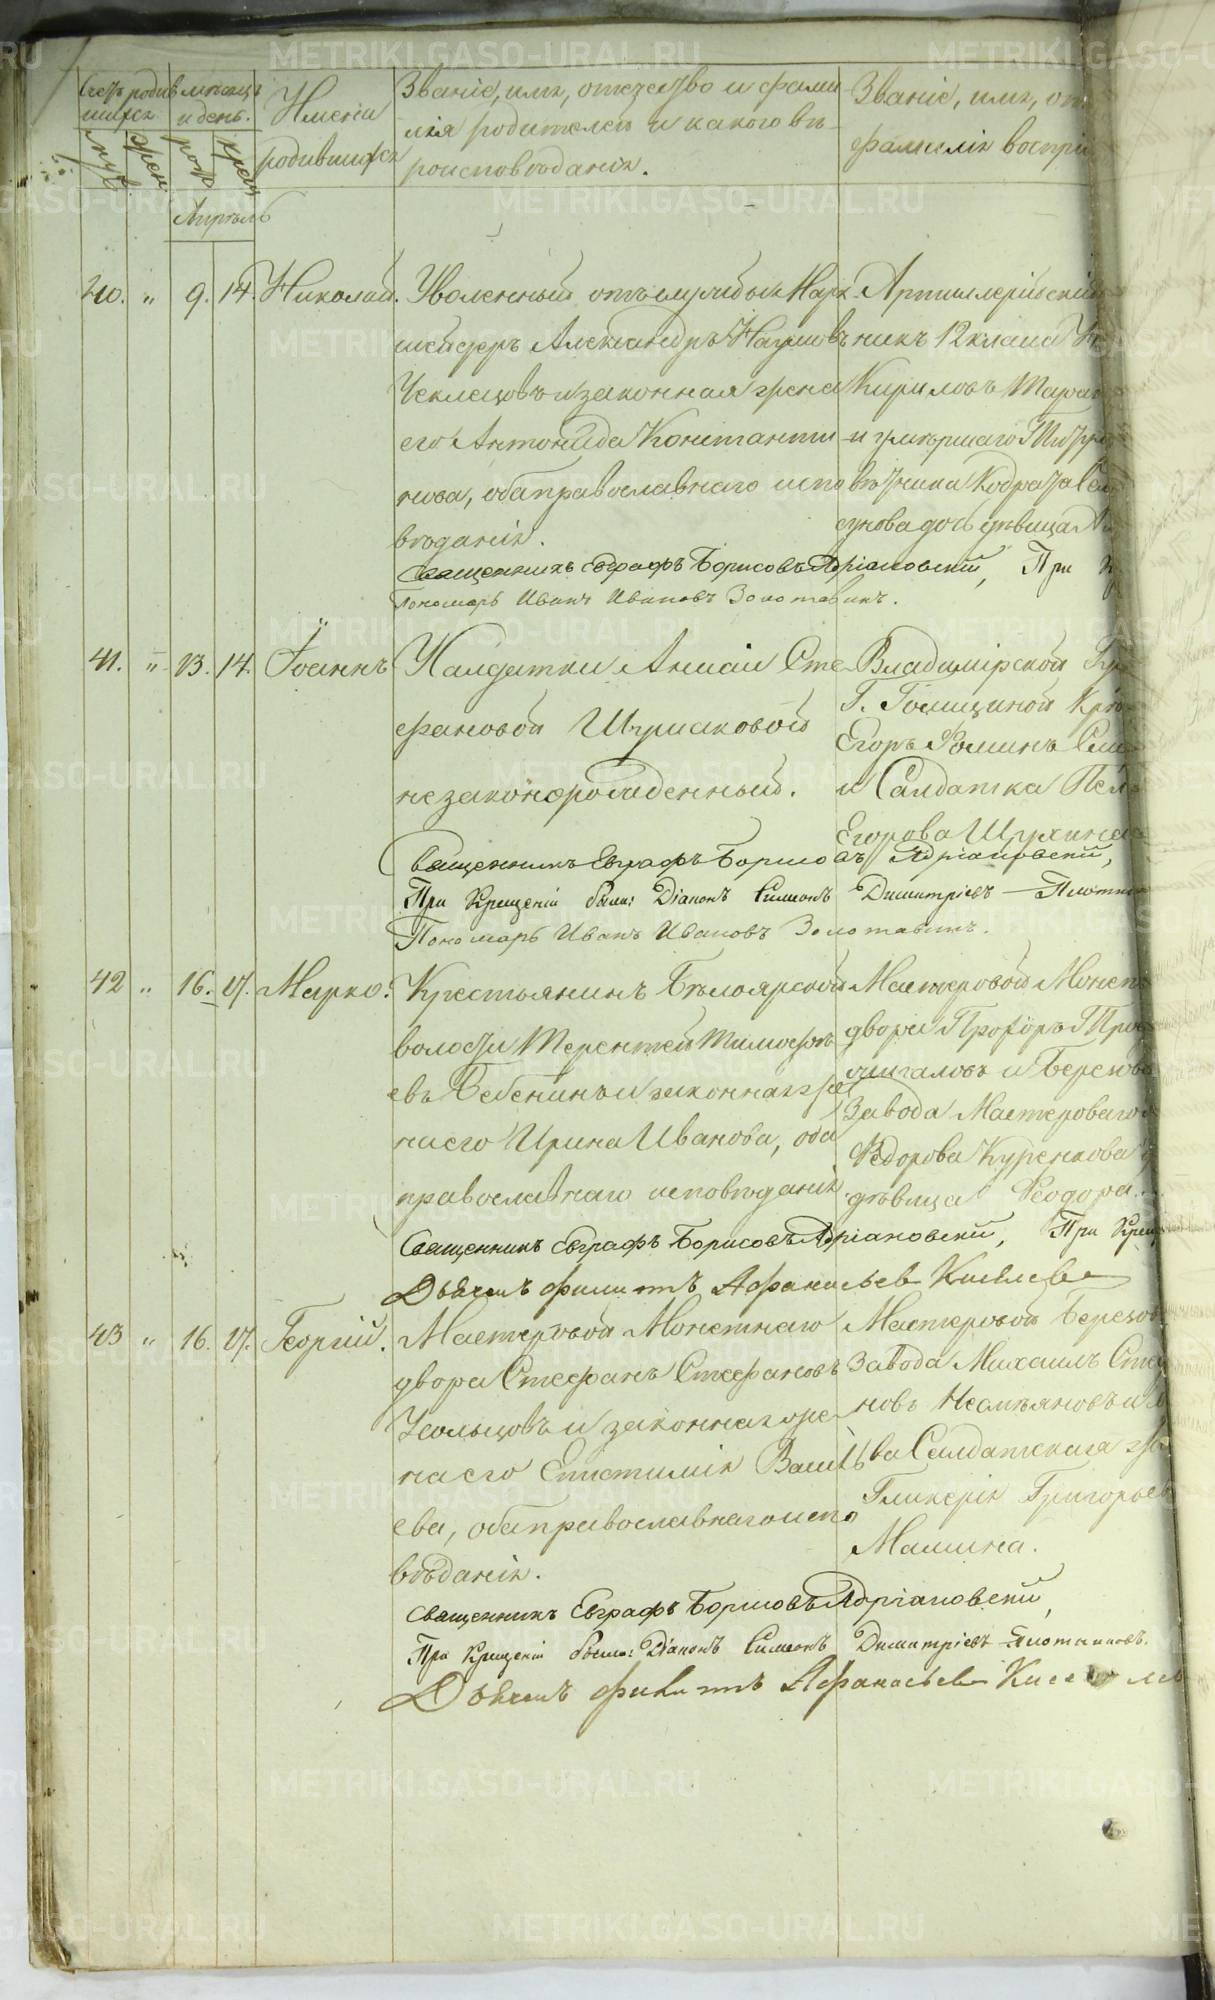 Счетъ родив
шихся
муж
жен
месяцъ
и день.
рож
крещ
Апрѣль
Имена
родившихся
Званіе, имя, отчество и фами
лія родителей и какого вѣ-
роисповѣданія.
Званіе, имя, от
фамилія воспрі
40. " 9. 14. Николай.
Уволенный отъ службы Марк
шейдеръ Александръ Наумовъ
Чеклецовъ и законная жена
его Антонида Константи-
нова, оба православнаго испо
вѣданія.
Артиллерійскій
никъ 12 класса
Кириловъ
и умершаго
дочь дѣвица
Священникъ Евграфъ Борисовъ Адріановскій, При
Пономарь Иванъ Ивановъ Золотавинъ.
41. " 13. 14. Іоаннъ
Салдатки Анисіи Сте-
фановой Шушаковой
незаконорожденный.
Владимірской Гу
Г. Голицыной Кр
Егоръ Фоминъ
и Салдатка Пел
Егорова Щукина
Священникъ Евграфъ Борисовъ Адріановскій,
При Крещеніи были: Діаконъ Симеонъ Димитріевъ Плотни
Пономарь Иванъ Ивановъ Золотавинъ.
42 " 16. 17. Марко.
Крестьянинъ Бѣлоярской
волости Терентей Тимофѣ
евъ Бебенинъ и законная же
на его Ирина Иванова, оба
православнаго исповѣданія
Мастеровой Монет
двора Прохоръ Про
шигаловъ и Березов
Завода Мастероваго
Ѳедорова Куренкова
дѣвица Ѳеодора.
Священникъ Евграфъ Борисовъ Адріановскій, При Крещ
Дьячекъ Филиппъ Афанасьевъ Киселевъ
43 " 16. 17. Георгій.
Мастеровой Монетнаго
двора Стефанъ Стефановъ
Усольцовъ и законная же-
на его Епистимія Василь
ева, оба православнаго испо
вѣданія.
Мастеровой Березов
Завода Михаилъ Сте
новъ Несмѣяновъ и
ва Салдатская же
Гликерія Григорьев
Мамина.
Священникъ Евграфъ Борисовъ Адріановскій,
При Крещеніи были: Діаконъ Симеонъ Димитріевъ Плотниковъ.
Дьячекъ Филиппъ Афанасьевъ Киселев